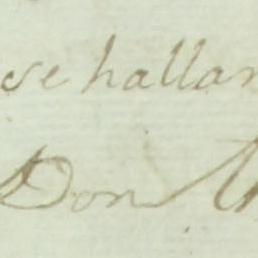 se hallan
Don